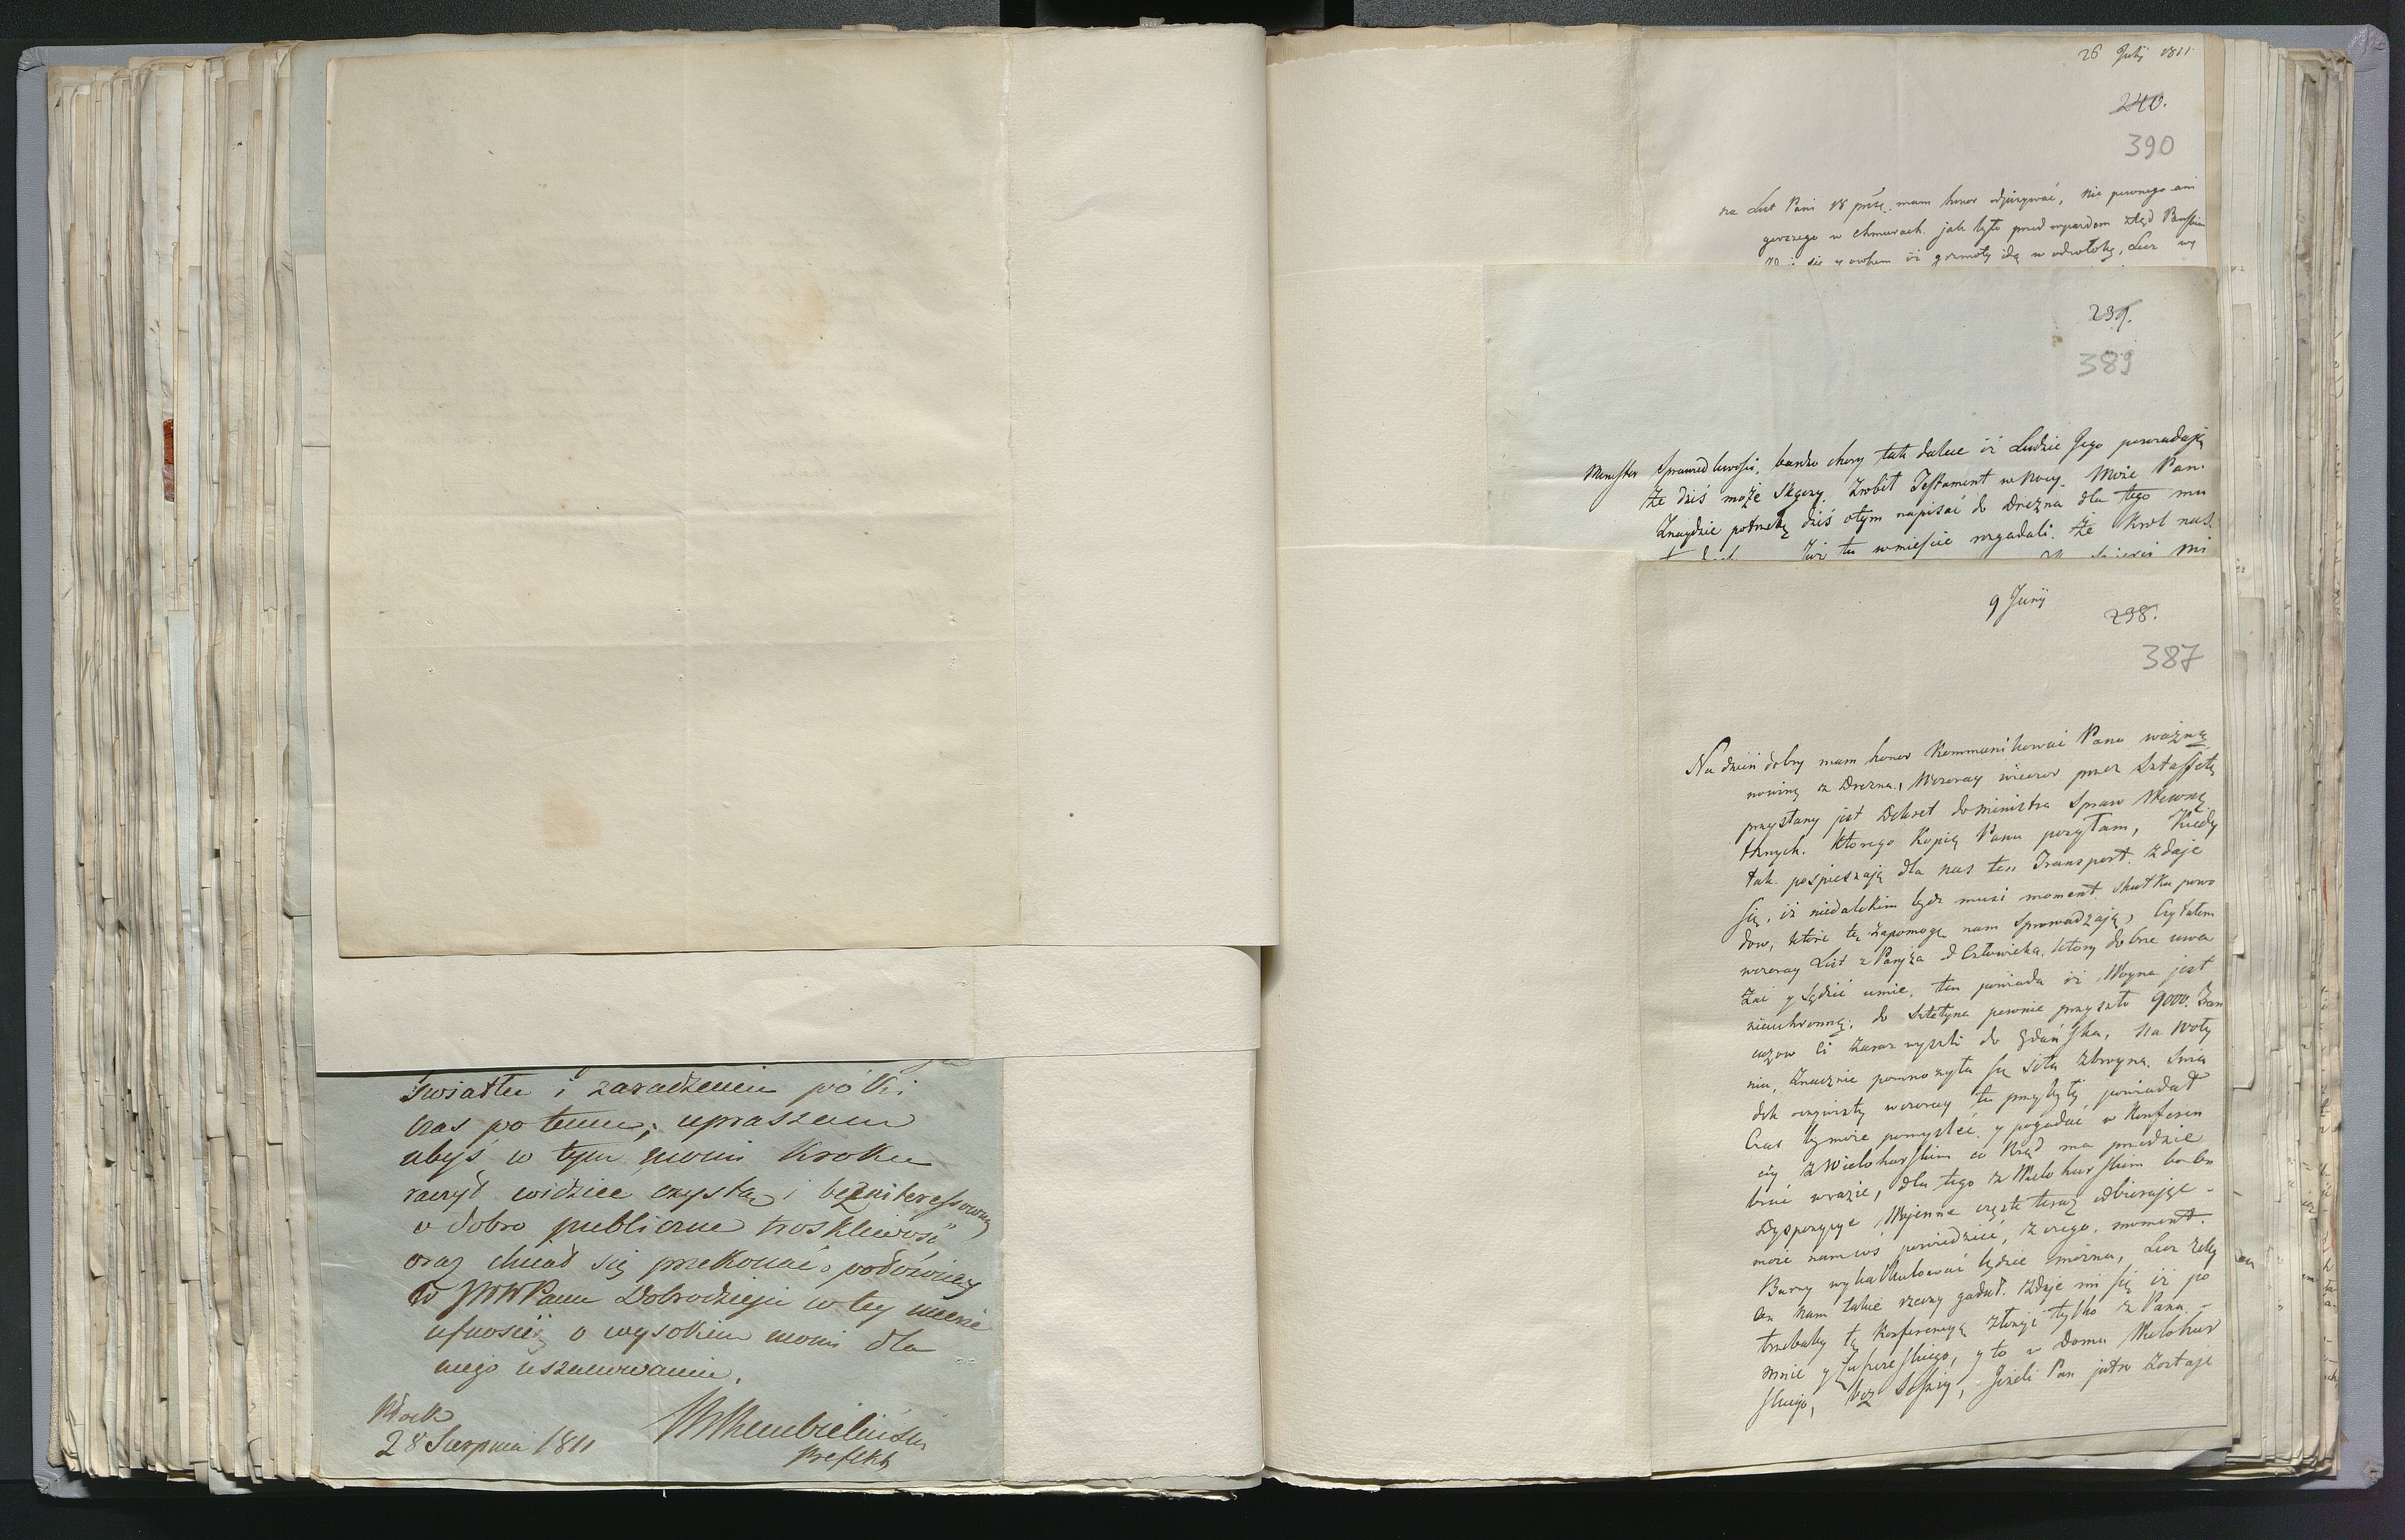 światłu i zaradzeniu póki
czas po temu; upraszam
abyś w tym moim kroku
raczył widzieć czystą i bezinteressowną
o dobro publiczne troskliwość
oraz chciał się przekonać o
W JWW Panu Dobrodzieju w tey mierze
ufności; o wysokiem moim dla
niego uszanowaniu.
Płock
28 Sierpnia 1811
Rembieliński
Prefekt
26 Julij 1811
240.
390
na List Pani 18 mam honor odpisywać, nic pewnego ani
gorszego w chmurach jak było przed wyjazdem ztąd
się iż grzmoty idą w odwłokę, Lecz
239.
389
Minister Sprawiedliwości bardzo chory tak dalece iż Ludzie Jego powiadają
że dziś może skończy. Zrobił Testament w Nocy. Może Pan
Znaydzie potrzebę dziś o tym napisać do Drezna dla tego mu
tu w mieście rozgadali. że Krol nasz
9 Junij
238.
387
Na dzień dobry mam honor Kommunikować Panu ważną
nowinę z Drezna, Wczoray wieczor przez Sztaffetę
przysłany jest Dekret do Ministra Spraw Wewnę
trznych. Którego Kopię Panu posyłam, Kiedy
tak pospieszają dla nas ten Transport. zdaje
się, iż niedalekim bydź musi moment skutku powo
dow, które tę zapomogę nam sprowadzają, Czytałem
wczoray List z Paryża od Człowieka, ktory dobrze uwa
żać y sądzić umie, ten powiada iż Woyna jest
nieuchronną; do Sztetyna pewnie przyszło 9000. Fran
cuzow ci zaraz wyszli do Gdańska, na Woły
niu, Znacznie pomnożyła się siła zbroyna. Świa
dek oczywisty wczoray tu przybyły powiadał
Czas by może pomysleć y pogadać w Konferen
cyi z Wielohurskim co Rząd ma przedsię
brać w razie, dla tego z Wielohurskim bo on
Dyspozycye Wojenne często teraz odbierając -
może nam coś powiedzieć, z czego, moment.
Burzy wykalkulować będzie można, Lecz żeby
on nam takie rzeczy gadał. zdaje mi się iż po
trzebaby tę Konferencyą złożyć tylko z Pana -
mnie y y to w Domu Wielohur
skiego, bez Sessyi, Jeżeli Pan jutro zostaje